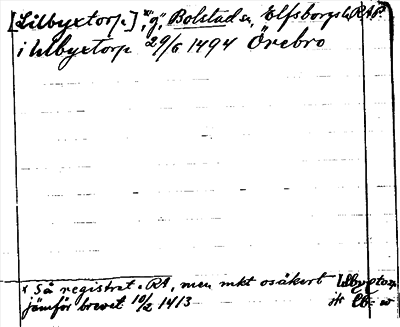 [Lilbyxtorp], "g", Bolstad sn, Elfsborgs l. RAP.
i Ulbyxtorp 29/6 1494 Örebro
x Så registrat. RA, men mkt osäkert Ulbyxtorp
jämför brevet 10/2 1413